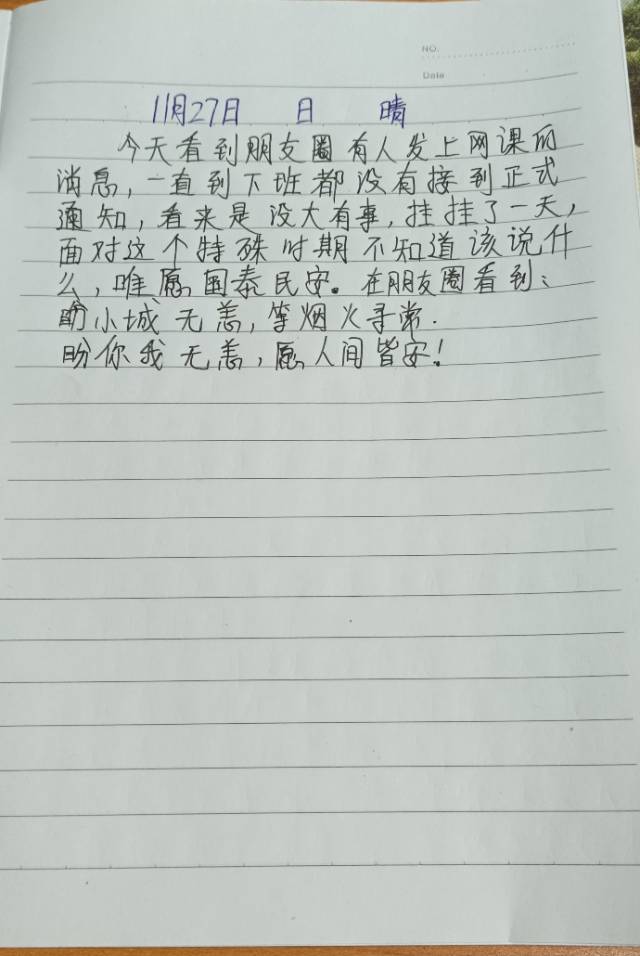 NO.
Date
11月27日 日 晴
今天看到朋友圈有人发上网课的
消息,一直到下班都没有接到正式
通知,看来是没大有事,挂挂了一天,
面对这个特殊时期不知道该说什
么,唯愿国泰民安。在朋友圈看到:
盼小城无恙,等烟火寻常.
盼你我无恙,愿人间皆安!